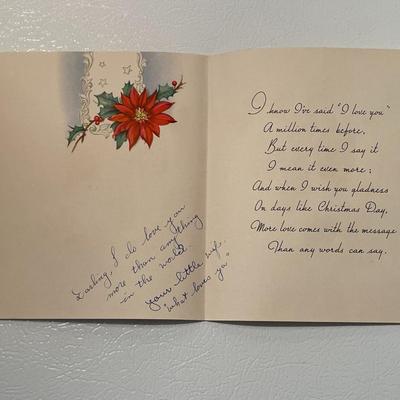 Darling, I do love you
more than anything
in the world.
your little wife,
"what loves ya"
I know I've said "I love you"
A million times before,
But every time I say it
I mean it even more;
And when I wish you gladness
On days like Christmas Day,
More love comes with the message
Than any words can say.